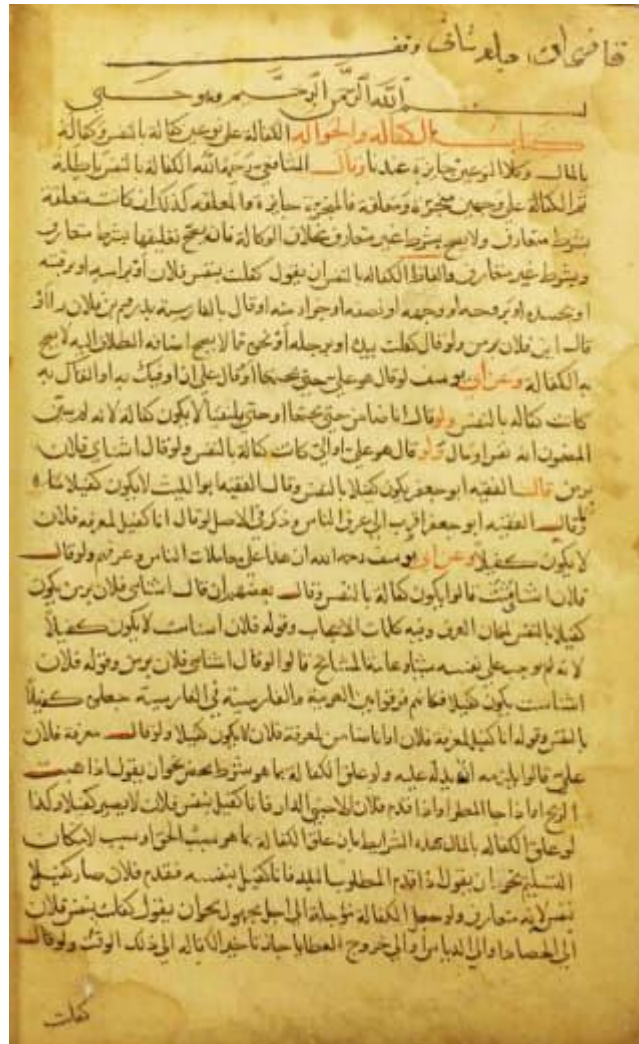 قاضيخان جلد ثاني وقف
بسم الله الرحمن الرحيم وهو حسبي
كتاب الكفالة والحوالة الكفالة على نوعين كفالة بالنفس وكفالة
بالمال وكلا النوعين جايزة عندنا وقال الشافعي رحمه الله الكفالة بالنفس باطلة
ثم الكفالة على وجهين منجزة ومعلقة فالمنجزة جايزة والمعلقة كذلك ان كانت متعلقة
بشرط متعارف ولا يصح بشرط غير متعارف بخلاف الوكالة فانه يصح تعليقها بشرط متعارف
وبشرط غير متعارف والفاظ الكفالة بالنفس ان يقول كفلت بنفس فلان او براسه او برقبته
او بجسده او بروحه او وجهه او نصفه او جزء منه او قال بالفارسية
ولو قال كفلت بيده او برجله او نحو مما لا يصح اضافة الطلاق اليه لا يصح
به الكفالة وعن ابي يوسف لو قال هو علي حتى يجتمعا او قال علي ان اوفيك به او القاك به
كانت كفالة بالنفس ولو قال انا ضامن حتى يجتمعا او حتى يلتقيا لا يكون كفالة لانه لم يبين
المضمون انه نفس او مال ولو قال هو علي او الي كانت كفالة بالنفس ولو قال اشناي فلان
برمن قال الفقيه ابو جعفر يكون كفيلا بالنفس وقال الفقيه ابو الليث لا يكون كفيلا
وقال الفقيه ابو جعفر اقرب الى عرف الناس وذكر في الاصل لو قال انا كفيل لمعرفة فلان
لا يكون كفيلا وعن ابي يوسف رحمه الله ان هذا على معاملات الناس وعرفهم ولو قال
فلان اشناي منست قالوا يكون كفالة بالنفس وقال بعضهم ان قال اشناي فلان برمن يكون
كفيلا بالنفس لمكان العرف وفيه كلمات الايجاب وقوله فلان اشناست لا يكون كفيلا
لانه لم يوجب على نفسه شيا وعامة المشايخ قالوا لو قال اشناي فلان برمن وقوله فلان
اشناست يكون كفيلا فكانهم فرقوا بين العربية والفارسية في الفارسية جعلوه كفيلا
بالنفس وقوله انا كفيل لمعرفة فلان او انا ضامن لمعرفة فلان لا يكون كفيلا ولو قال معرفة فلان
علي قالوا يلزمه ان يدله عليه ولو علق الكفالة بما هو شرط محض نحو ان يقول اذا هبت
الريح او اذا جا المطر او اذا قدم فلان الاجنبي الدار فانا كفيل بنفس فلان لا يصير كفيلا وكذا
لو علق الكفالة بالمال بهذه الشرايط وان علق الكفالة بما هو سبب الحق او سبب لامكان
التسليم نحو ان يقول اذا قدم المطلوب البلد فانا كفيل بنفسه فقدم فلان صار كفيلا
بنفسه لانه متعارف ولو جعل الكفالة مؤجلة الى اجل مجهول نحو ان يقول كفلت بنفس فلان
الى الحصاد او الى الدياس او الى خروج العطايا جاز تاخير الكفالة الى ذلك الوقت ولو قال
كفلت